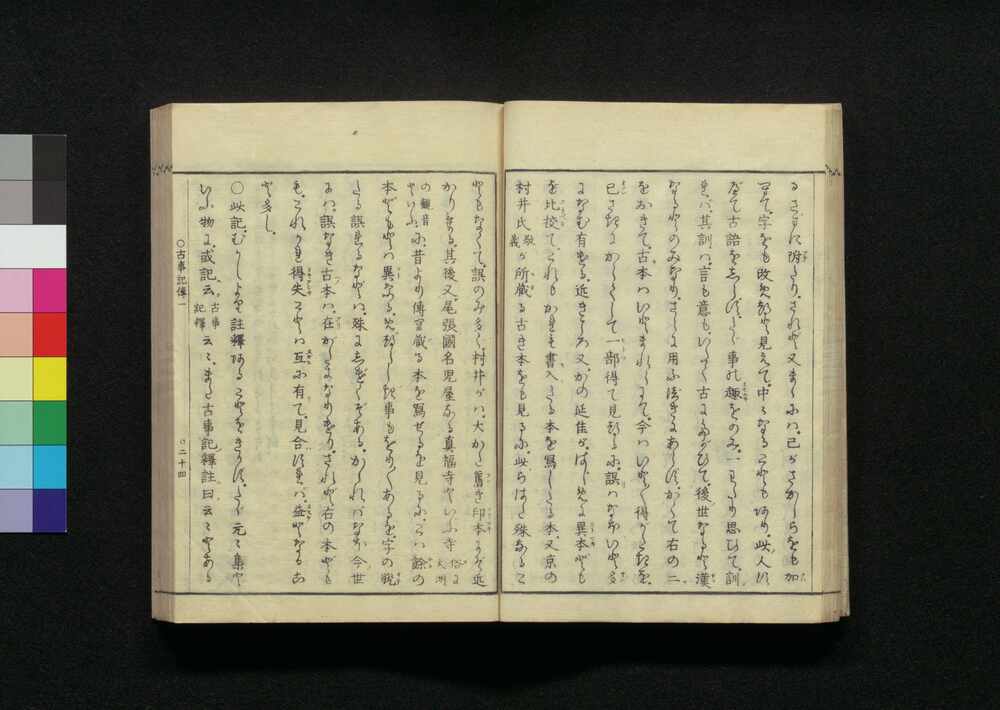 るさまに附たり、されど又まゝには、己がさかしらをも加
へて、字をも改めつと見えて、中々なることもあり、此人す
べて古語をしらず、たゞ事の趣をのみ、一わたり思ひて、訓
れば、其訓は、言も意も、いたく古にたがひて、後世なると漢
なるとのみなり、さらに用ふべきにあらず、かくて右の二
をおきて、古本はいとまれらにて、今はいと〱得がたきを、
己さきにからくして一部得て見つるに、誤はなほいと多
になむ有ける、近きころ又、かの延佳が、はじめに異本ども
を比挍て、これもかれも書入たる本を寫したる本、又京の
村井氏敬義が所蔵る古き本をも見るに、此らはた殊なるこ
ともなくて、誤のみ多く、村井がは、大かた舊き印本にぞ近
かりける、其後又、尾張國名児屋なる真福寺といふ寺俗に大洲
の觀音といふに、昔より傳へ蔵る本を寫せるを見るに、こは餘の
本どもとは異なる、めづらしき事もをり〱あるを、字の脱
たる誤れるなどは、殊にしげくぞある、かゝれば、なほ今世
には、誤なき古本は、在がたきなりけり、されど右の本ども
も、これかれ得失ことは互に有て、見合すれば、益となるこ
と多し、
○此記、むかしより註釋あることをきかず、たゞ元々集と
いふ物に、或記云古事記釋云々、また古事記釋註曰云々とある
○古事記傳一
○二十四